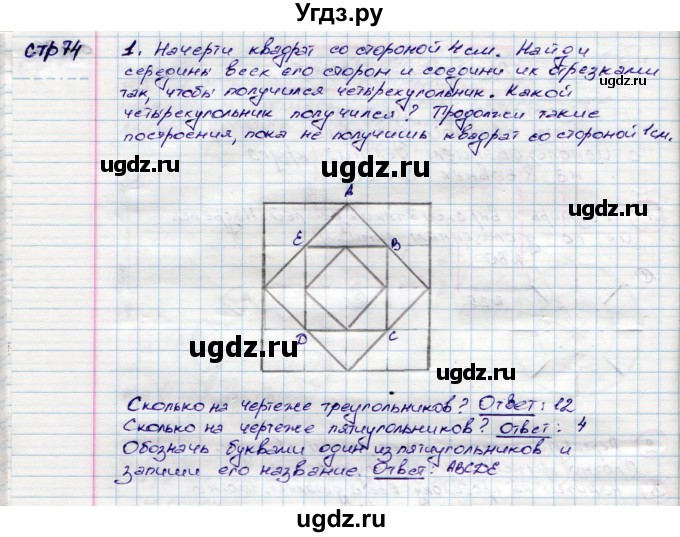 Угдз.ру
стр 74
1. Начерти квадрат со стороной 4 см. Найди
середины всех его сторон и соедини их отрезками
так, чтобы получился четырехугольник. Какой
четырехугольник получился? Продолжи такие
построения, пока не получишь квадрат со стороной 1 см.
ugdz.ru
ugdz.ru
ugdz.ru
A
E
B
ugdz.ru
ugdz.ru
ugdz.ru
D
C
Сколько на чертеже треугольников? Ответ: 12
Сколько на чертеже пятиугольников? Ответ: 4
Обозначь буквами один из пятиугольников и
запиши его название. Ответ: ABCDE
ugdz.ru
ugdz.ru
ugdz.ru
ugdz.ru